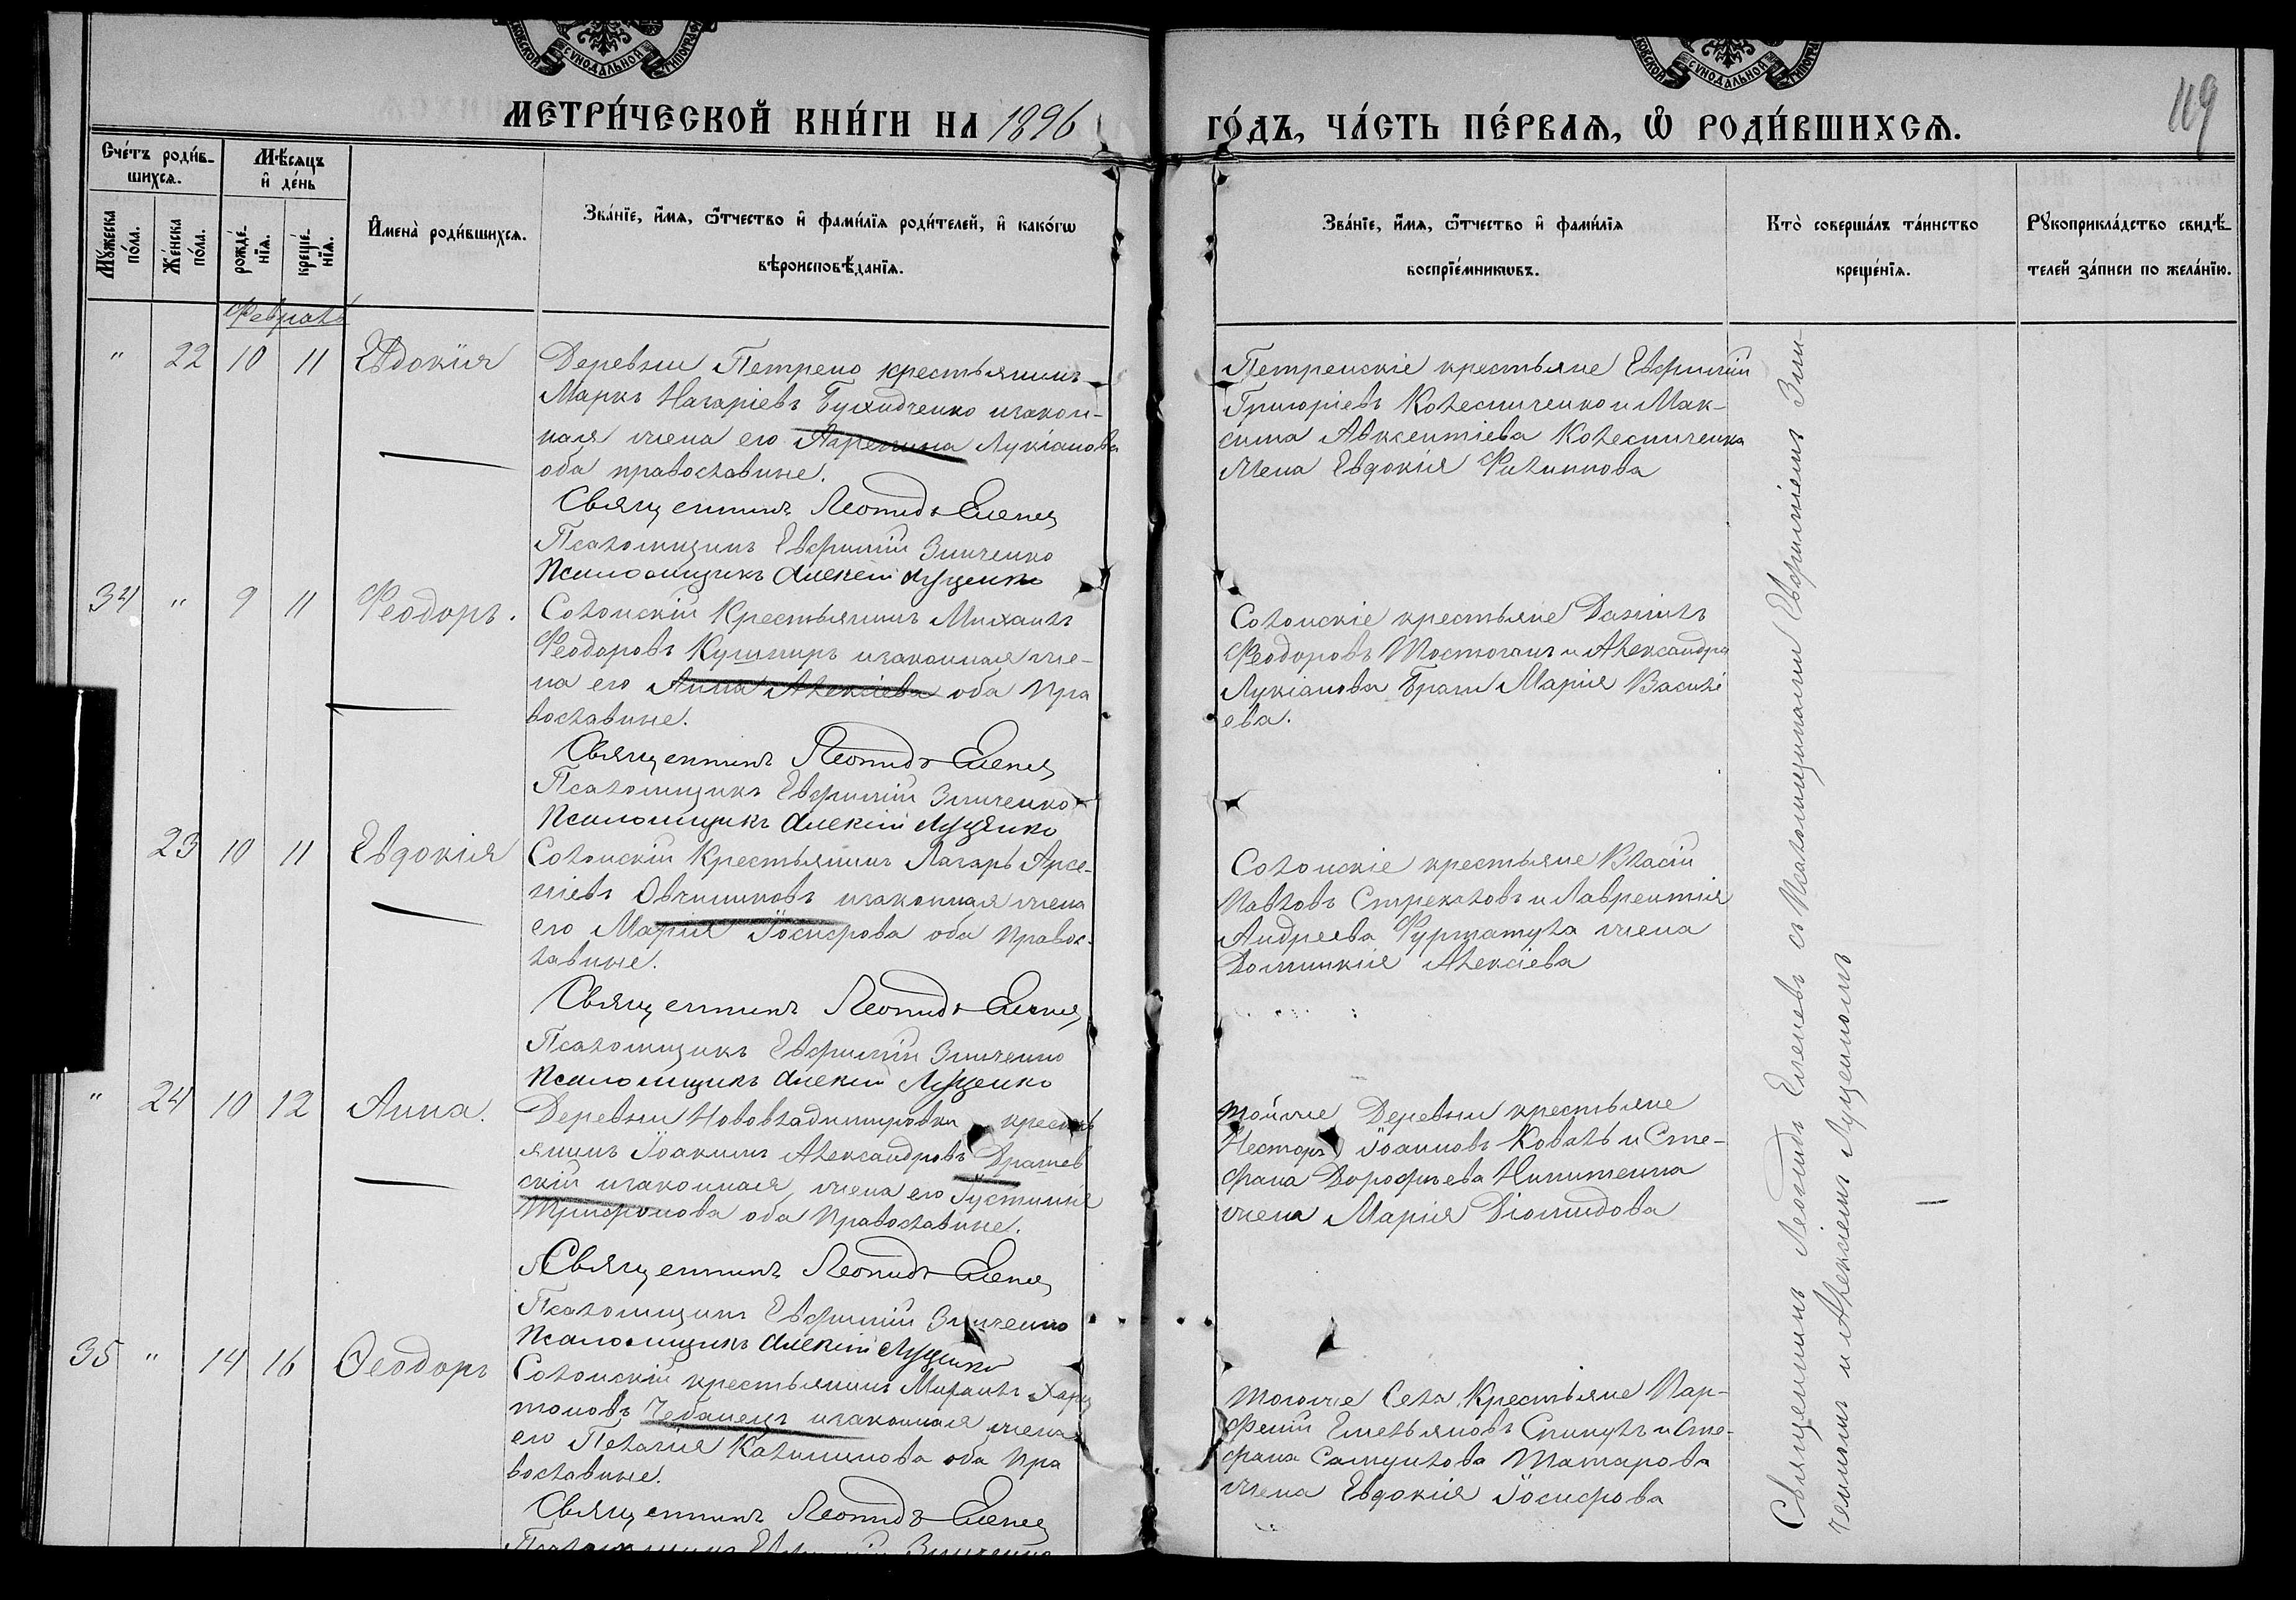 МЕТРИ́ЧЕСКОЙ КНИ́ГИ НА 1896
ГО́ДЪ, ЧА́СТЬ ПЕ́РВАѦ, Ѡ РОДИ́ВШИХСѦ.
119
Сче́тъ роди́в-
шихсѧ.
Мѣ́сѧцъ
и де́нь
Мꙋ́жеска
по́ла.
Же́нска
по́ла.
рожде́-
нїѧ.
креще́-
нїѧ.
Имена̀ роди́вшихсѧ.
Зва́нїе, и́мѧ, ѻ҆́тчество и фами́лїѧ роди́телей, и како́гѡ
вѣроисповѣ́данїѧ.
Зва́нїе, и́мѧ, ѻ҆́тчество и фами́лїѧ
воспрїе́мникѡвъ.
Кто̀ соверша́лъ та́инство
креще́нїѧ.
Рꙋкоприкла́дство свидѣ́-
телей за́писи по жела́нїю.
Февраль
" 22 10 11 Евдокія
Деревни Петрено крестьянинъ
Маркъ Назаріевъ изакон-
ная жена его Лукіанова
оба православные.
Священникъ Леонидъ Еленевъ
Псаломщикъ Евфимій Зинченко
Псаломщикъ Алексій Луценко
Петренскіе крестьяне Евфимій
Григоріевъ Колесниченко и Мак-
сима Авксентіева Колесниченка
жена Евдокія Филиппова
34 " 9 11 Феодоръ.
Солонскій Крестьянинъ Михаилъ
Феодоровъ Кушниръ изаконная же-
на его Анна Алексіева оба пра
вославные.
Священникъ Леонидъ Еленевъ
Псаломщикъ Евфимій Зинченко
Псаломщикъ Алексій Луценко
Солонскіе крестьяне Даніилъ
Феодоровъ и Александра
Лукіанова Марія Василі
ева.
23 10 11 Евдокія
Солонскій Крестьянинъ Лазарь Арсе-
ніевъ Овчинниковъ изаконная жена
его Марія Іосифова оба правос-
лавные.
Священникъ Леонидъ Еленевъ
Псаломщикъ Евфимій Зинченко
Псаломщикъ Алексій Луценко
Солонскіе крестьяне Власій
Павловъ Стрекаловъ и Лаврентія
Андреева жена
Домникія Алексіева
" 24 10 12 Анна.
Деревни Нововладимировки крестьь
янинъ Іоакимъ Александровъ
скій изаконная жена его Іустинія
Трифонова оба Православные.
Священникъ Леонидъ Еленевъ
Псаломщикъ Евфимій Зинченко
Псаломщикъ Алексій Луценко
тойже Деревни крестьяне
Несторъ Іоанновъ Коваль и Сте-
фана Дорофѣева Никитенка
жена Марія Діомидова
35 " 14 16 Ѳеодоръ
Солонскій крестьянинъ Михаилъ Хари
тоновъ Чебанецъ изаконная жена
его Пелагія Калинникова оба пра
вославные.
Священникъ Леонидъ Еленевъ
Псаломщикъ Евфимій Зинченко
тогоже Села Крестьяне Пар-
феній Емельяновъ и Сте-
фана Самуилова Татарова
жена Евдокія Іосифова
Священникъ Леонидъ Еленевъ съ Псаломщиками Евфиміемъ Зин-
ченкомъ и Алексіемъ Луценкомъ